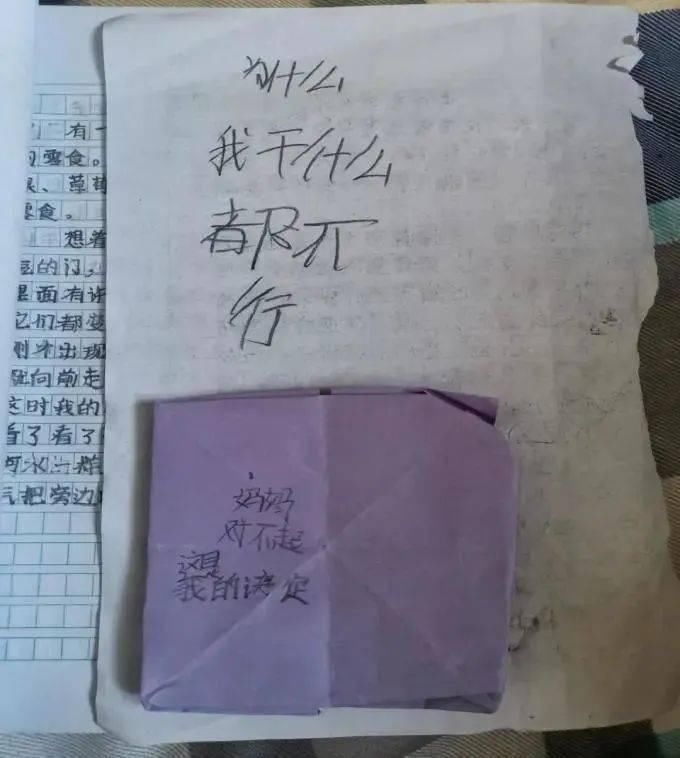 为什么
我干什么
都不
行
妈妈
对不起
这是
我的决定
有一
的零食。
、草莓
零食。
想着
的门,
里面有许
它们都变
刚才出现
向前走
这时我的
看了看了
把旁边